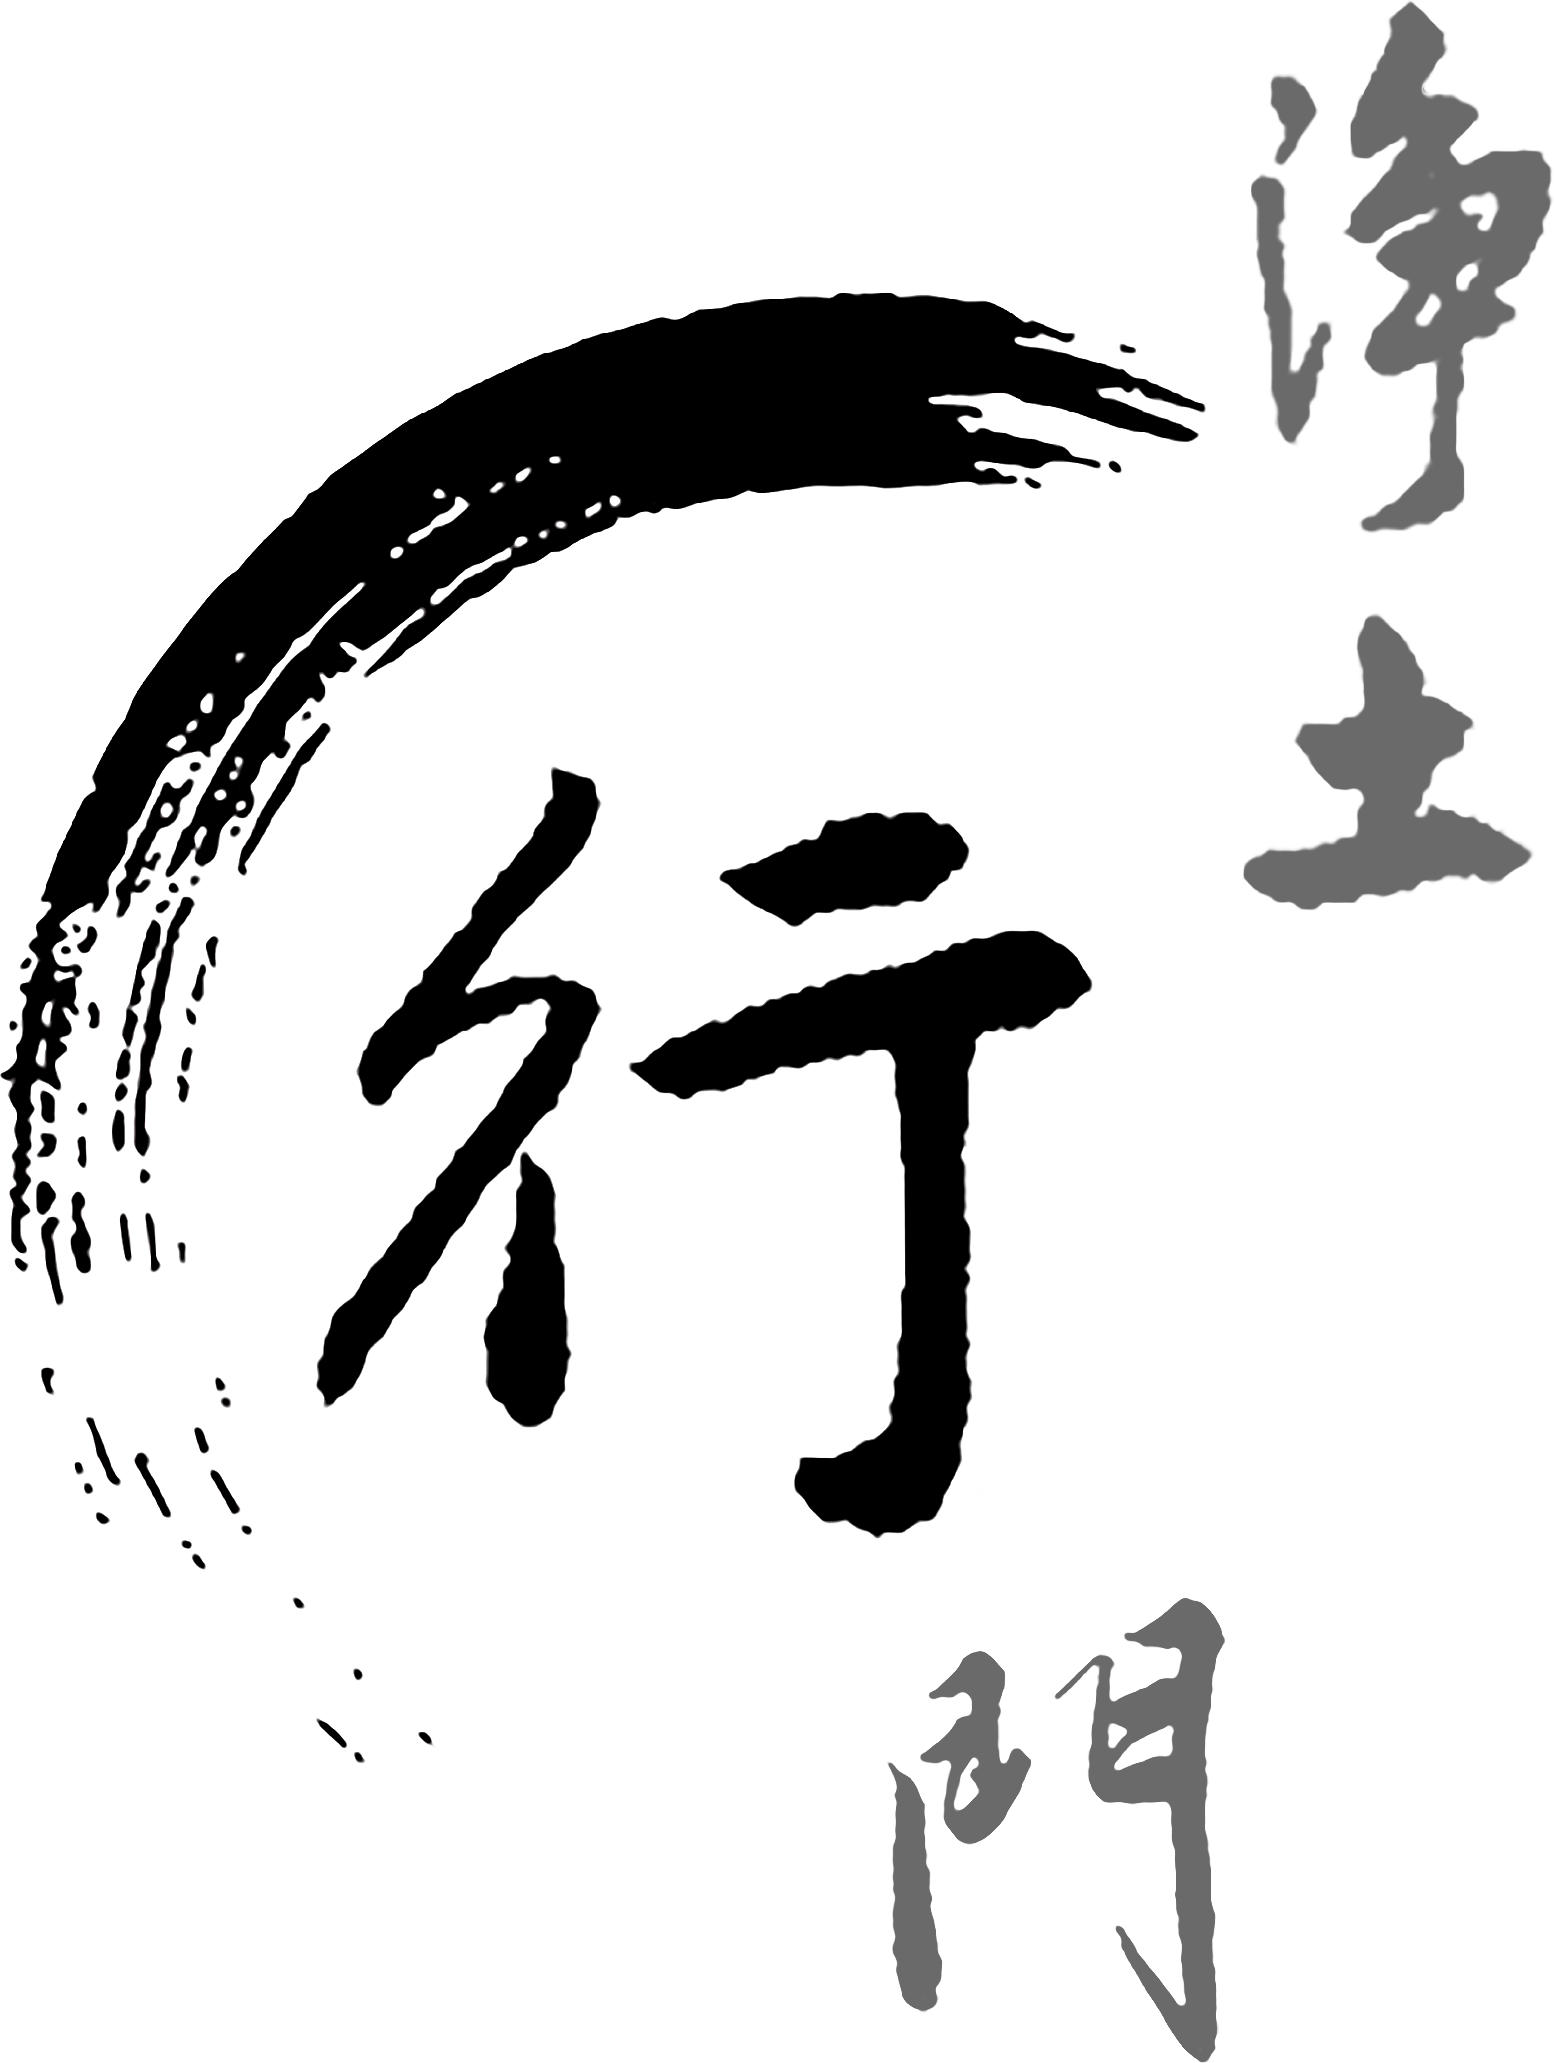 淨土
行
門